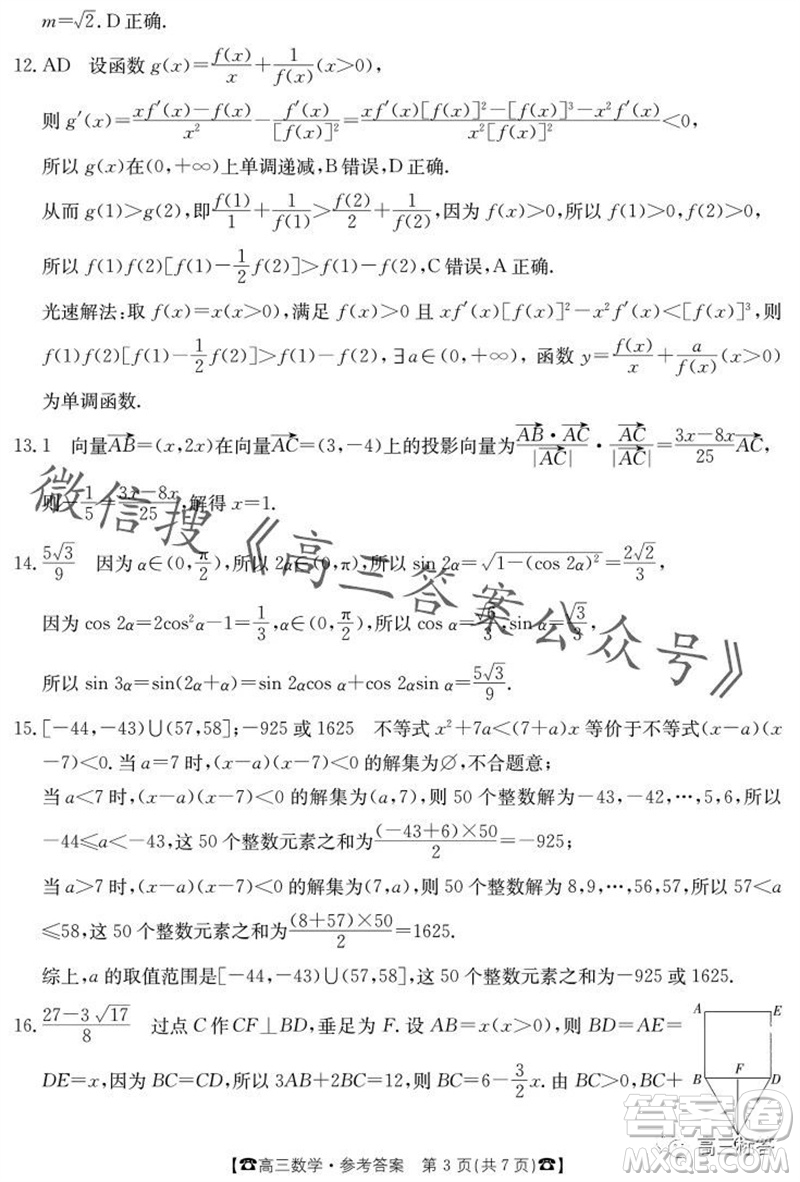 m=√2. D 正确.
12. AD 设函数 g(x)=f(x)/x+1/f(x)(x>0),
则 g′(x)=(xf′(x)-f(x))/x²-f′(x)/[f(x)]²=(xf′(x)[f(x)]²-[f(x)]³-x²f′(x))/(x²[f(x)]²)<0,
所以 g(x)在(0,+∞)上单调递减,B 错误,D 正确.
从而 g(1)>g(2),即f(1)/1+1/f(1)>f(2)/2+1/f(2),因为 f(x)>0,所以 f(1)>0,f(2)>0,
所以 f(1)f(2)[f(1)-1/2f(2)]>f(1)-f(2),C 错误,A 正确.
光速解法:取 f(x)=x(x>0),满足 f(x)>0 且 xf′(x)[f(x)]²-x²f′(x)<[f(x)]³,则
f(1)f(2)[f(1)-1/2f(2)]>f(1)-f(2),∃a∈(0,+∞),函数 y=f(x)/x+a/f(x)(x>0)
为单调函数.
13. 1 向量AB=(x,2x)在向量AC=(3,-4)上的投影向量为(AB·AC)/|AC|·AC/|AC|=(3x-8x)/25 AC,
则-1/5=(3x-8x)/25,解得 x=1.
14. 5√3/9 因为 α∈(0,π/2),所以 2α∈(0,π),所以 sin 2α=√(1-(cos 2α)²)=2√2/3,
因为 cos 2α=2cos²α-1=1/3,α∈(0,π/2),所以 cos α=√6/3,sin α=√3/3,
所以 sin 3α=sin(2α+α)=sin 2αcos α+cos 2αsin α=5√3/9.
15. [-44,-43)∪(57,58];-925 或 1625 不等式 x²+7a<(7+a)x 等价于不等式(x-a)(x
-7)<0. 当 a=7 时,(x-a)(x-7)<0 的解集为∅,不合题意;
当 a<7 时,(x-a)(x-7)<0 的解集为(a,7),则 50 个整数解为-43,-42,…,5,6,所以
-44≤a<-43,这 50 个整数元素之和为((-43+6)×50)/2=-925;
当 a>7 时,(x-a)(x-7)<0 的解集为(7,a),则 50 个整数解为 8,9,…,56,57,所以 57<a
≤58,这 50 个整数元素之和为((8+57)×50)/2=1625.
综上,a 的取值范围是[-44,-43)∪(57,58],这 50 个整数元素之和为-925 或 1625.
16. (27-3√17)/8 过点 C 作 CF⊥BD,垂足为 F. 设 AB=x(x>0),则 BD=AE=
DE=x,因为 BC=CD,所以 3AB+2BC=12,则 BC=6-3/2x. 由 BC>0,BC+
A E
F
B D
微信搜《高三答案公众号》
答案圈
高三标答
MXQE.COM
【☎高三数学·参考答案 第 3 页(共 7 页)☎】